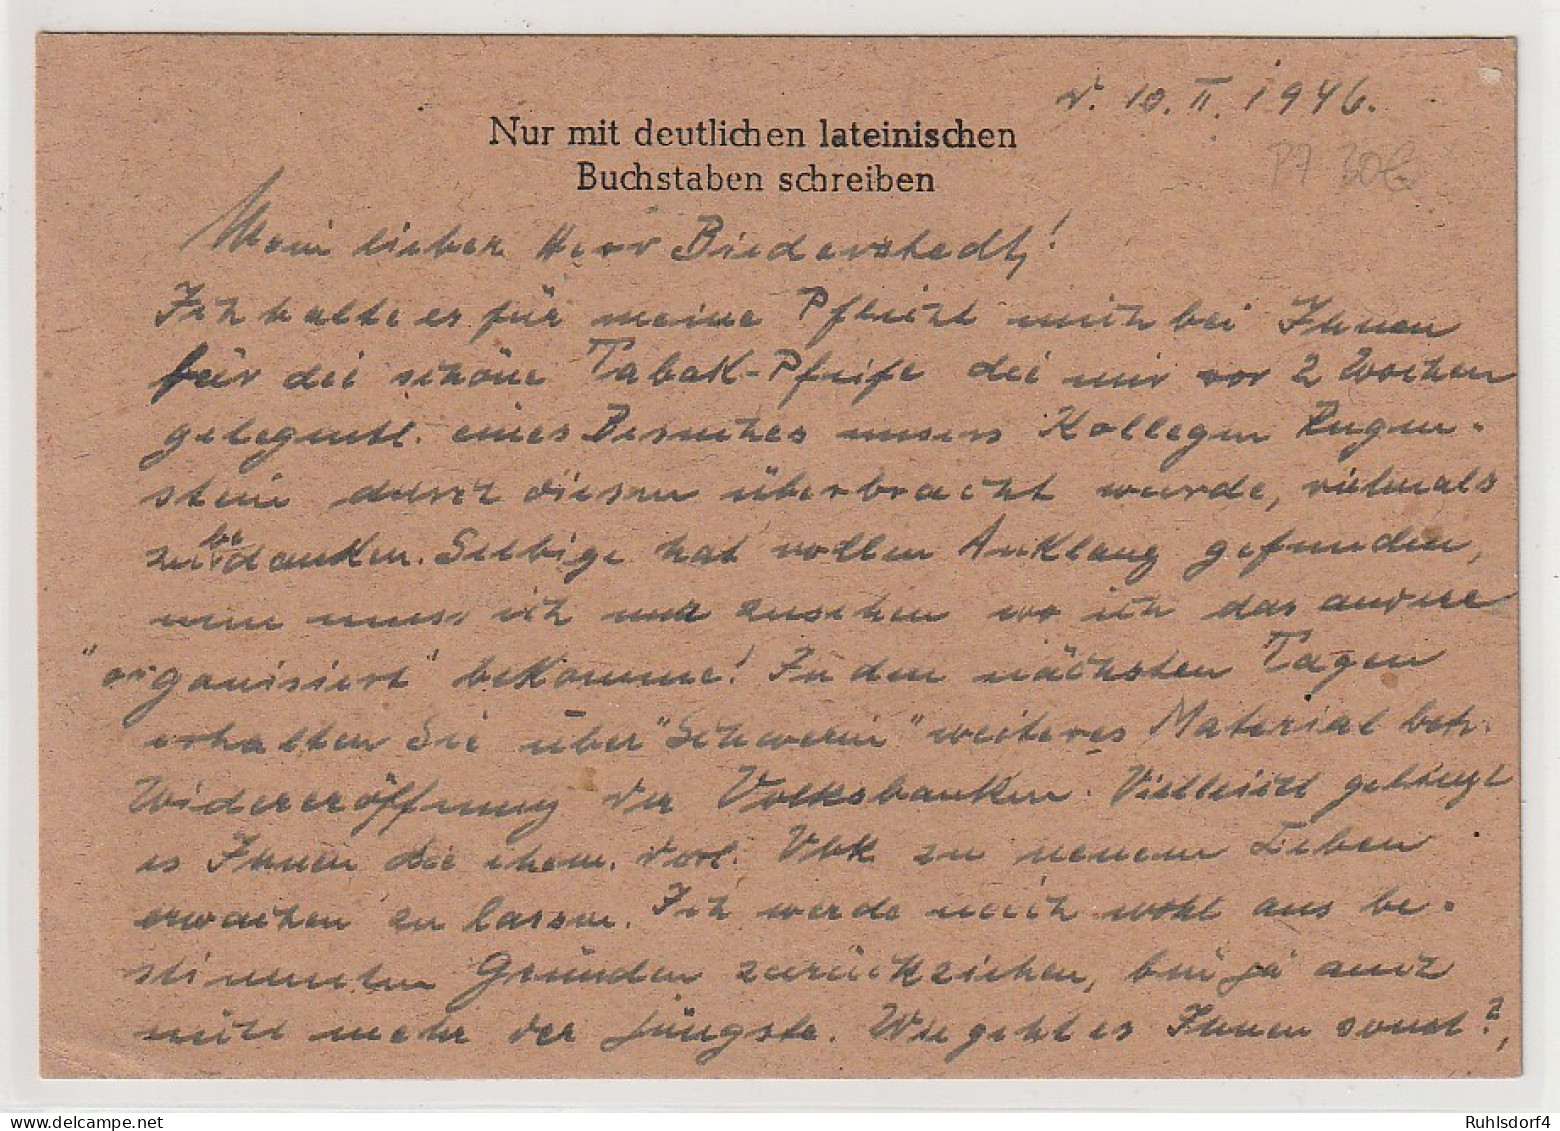 v. 10. II. 1946.
Nur mit deutlichen lateinischen
Buchstaben schreiben
P7 30
Mein lieber Herr Biederstedt!
Ich halte es für meine Pflicht mich bei Ihnen
für die schöne Tabak-Pfeife die mir vor 2 Wochen
gelegentl. eines Besuches unsers Kollegen Rugen-
stein durch diesen überbracht wurde, vielmals
zu bedanken. Selbige hat vollen Anklang gefunden,
nun muss ich nur zusehen wo ich das andere
"organisiert" bekomme! In den nächsten Tagen
erhalten Sie über "Schwerin" weiteres Material betr.
Widereröffnung der Volksbanken. Vielleicht gelingt
es Ihnen die ehem. Vbk zu neuem Leben
erwachen zu lassen. Ich werde mich wohl aus be-
stimmten Gründen zurückziehen, bin ja auch
nicht mehr der jüngste. Wie geht es Ihnen sonst?,
Ruhlsdorf4